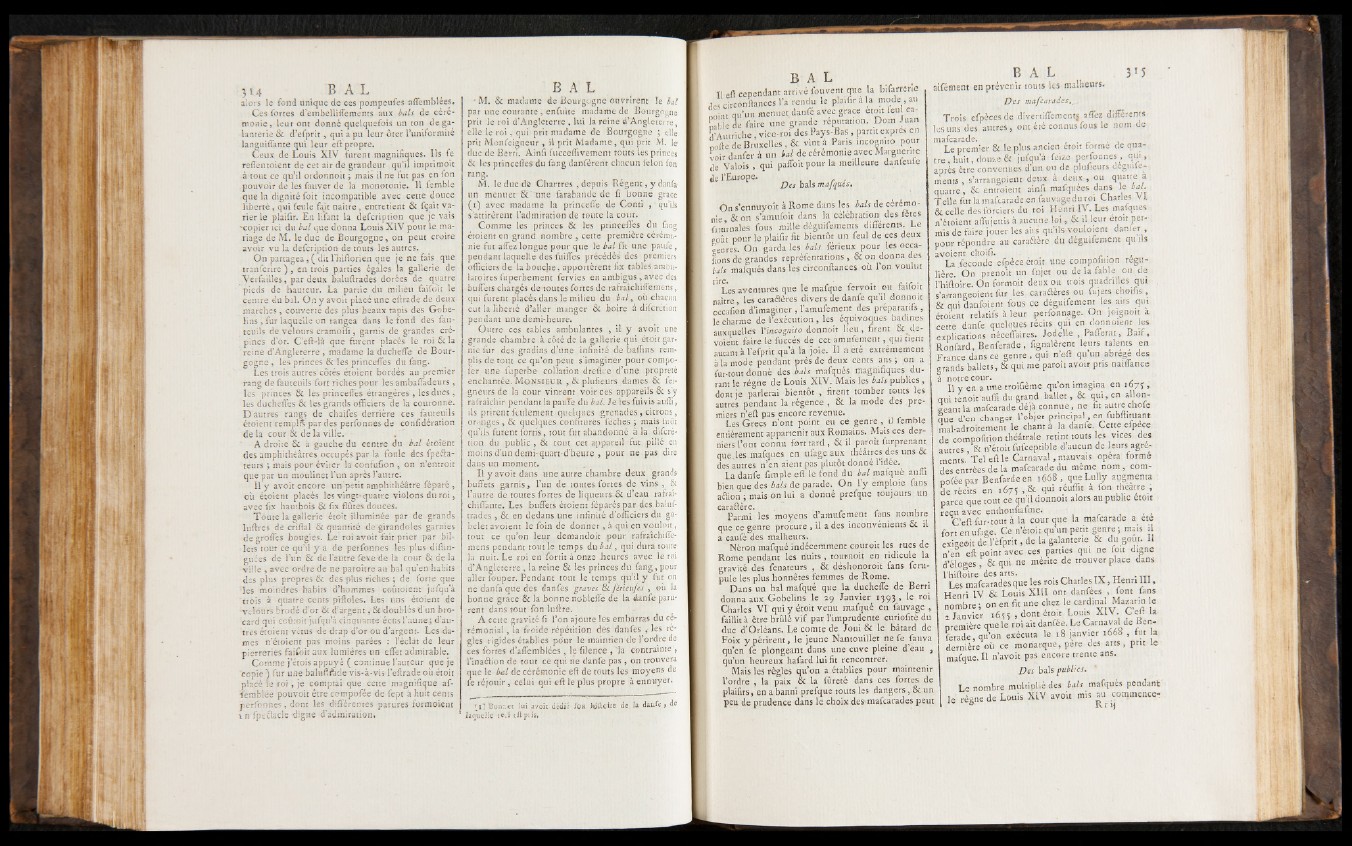 314 BAL
alors le fond unique de ces pompeuses assemblées.
Ces sortes d'embellissements aux bals de céré-
monie, leur ont donné quelquefois un ton de ga-
lanterie & d'esprit, qui a pu leur ôter l'uniformité
languissante qui leur est propre.
Ceux de Louis XIV furent magnifiques. Ils se
ressentoient de cet air de grandeur qu'il imprimoit
à tout ce qu'il ordonnoit; mais il ne fut pas en son
pouvoir de les sauver de la monotonie. Il semble
que la dignité soit incompatible avec cette douce
liberté, qui seule fait naître, entretient & sçait va-
rier le plaisir. En lisant la description que je vais
copier ici du bal que donna Louis XIV pour le ma-
riage de M. le duc de Bourgogne, on peut croire
avoir vu la description de tous les autres.
On partagea, (dit l'historien que je ne fais que
transcrire), en trois parties égales la gallerie de
Versailles, par deux balustrades dorées de quatre
pieds de hauteur. La partie du milieu faisoit le
centre du bal. On y avoit placé une estrade de deux
marches, couverte des plus beaux tapis des Gobe-
lins, sur laquelle on rangea dans le fond des fau-
teuils de velours cramoisi, garnis de grandes cré-
pines d'or. C'est-là que furent placés le roi & la
reine d'Angleterre, madame la duchesse de Bour-
gogne, les princes & les princesses du sang.
Les trois autres côtés étoient bordés au premier
rang de fauteuils fort riches pour les ambassadeurs,
les princes & les princesses étrangères, les ducs,
les duchesses & les grands officiers de la couronne.
D'autres rangs de chaises derrière ces fauteuils
étoient remplis par des personnes de considération
de la cour & de la ville.
A droite & à gauche du centre du bal étoient
des amphithéâtres occupés par la foule des specta-
teurs; mais pour éviter la confusion, on n'entroit
que par un moulinet l'un après l'autre.
Il y avoit encore un petit amphithéâtre séparé,
où étoient placés les vingt-quatre violons du roi,
avec six hautbois & six flûtes douces.
Toute la gallerie étoit illuminée par de grands
lustres de cristal & quantité de girandoles garnies
de grosses bougies. Le roi avoit fait prier par bil-
lets tout ce qu'il y a de personnes les plus distin-
guées de l'un & de l'autre sexe de la cour & de la
ville, avec ordre de ne paroître au bal qu'en habits
des plus propres & des plus riches; de sorte que
les moindres habits d'hommes coûtoient jusqu'à
trois à quatre cents pistoles. Les uns étoient de
velours brodé d'or & d'argent, & doublés d'un bro-
card qui coûtoit jusqu'à cinquante écus l'aune; d'au-
tres étoient vêtus de drap d'or ou d'argent. Les da-
mes n'étoient pas moins parées: l'éclat de leur
pierreries faisoit aux lumières un effet admirable.
Comme j'étois appuyé (continue l'auteur que je
copie) sur une balustrade vis-à-vis l'estrade où étoit
placé le roi, je comptai que cette magnifique as-
semblée pouvoit être composée de sept à huit cents
personnes, dont les différentes parures formoient
un spectacle digne d'admiration.
BAL
M. & madame de Bourgogne ouvrirent le bal
par une courante, ensuite madame de Bourgogne
prit le roi d'Angleterre, lui la reine d'Angleterre,
elle le roi, qui prit madame de Bourgogne; elle
prit Monseigneur, il prit Madame, qui prit M. le
duc de Berri. Ainsi successivement touts les princes
& les princesses du sang dansèrent chacun selon son
rang.
M. le duc de Chartres, depuis Régent, y dansa
un menuet & une sarabande de si bonne grace
(1) avec madame la princesse de Conti, qu'ils
s'attirèrent l'admiration de toute la cour.
Comme les princes & les princesses du sang
étoient en grand nombre, cette première cérémo-
nie fut assez longue pour que le bal fît une pause,
pendant laquelle des suisses précédés des premiers
officiers de la bouche, apportèrent six tables ambu-
latoires superbement servies en ambigus, avec des
buffets chargés de toutes sortes de rafraîchissements,
qui furent placés dans le milieu du bal, où chacun
eut la liberté d'aller manger & boire à discrétion
pendant une demi-heure.
Outre ces tables ambulantes, il y avoit une
grande chambre à côté de la gallerie qui étoit gar-
nie sur des gradins d'une infinité de bassins rem-
plis de tout ce qu'on peut s'imaginer pour compo-
ser une superbe collation dressée d'une propreté
enchantée. MONSIEUR, & plusieurs dames & sei-
gneurs de la cour vinrent voir ces appareils & s'y
rafraîchir pendant la pause du bal. Je les suivis aussi,
ils prirent seulement quelques grenades, citrons,
oranges, & quelques confitures sèches; mais sitôt
qu'ils furent sortis, tout fut abandonné à la discré-
tion du public, & tout cet appareil fut pillé en
moins d'un demi-quart d'heure, pour ne pas dire
dans un moment.
Il y avoit dans une autre chambre deux grands
buffets garnis, l'un de toutes sortes de vins, &
l'autre de toutes sortes de liqueurs & d'eau rafraî-
chissante. Les buffets étoient séparés par des balus-
trades, & en dedans une infinité d'officiers du go-
belet avoient le soin de donner, à qui en vouloit,
tout ce qu'on leur demandoit pour rafraîchisse-
mens pendant tout le temps du bal, qui dura toute
la nuit. Le roi en sortit à onze heures avec le roi
d'Angleterre, la reine & les princes du sang, pour
aller souper. Pendant tout le temps qu'il y fut on
ne dansa que des danses graves & sérieuses, où la
bonne grace & la bonne noblesse de la danse paru-
rent dans tout son lustre.
A cette gravité si l'on ajoute les embarras du cé-
rémonial, la froide répétition des danses, les rè-
gles rigides établies pour le maintien de l'ordre de
ces sortes d'assemblées, le silence, la contrainte,
l'inaction de tout ce qui ne danse pas, on trouvera
que le bal de cérémonie est de touts les moyens de
se réjouir, celui qui est le plus propre à ennuyer.
(1) Bonnet lui avoit dédié son histoire de la danse, de
laquelle ceci est pris.
BAL
Il est cependant arrivé souvent que la bisarrerie
des circonstances l'a rendu le plaisir à la mode, au
point qu'un menuet dansé avec grace étoit seul ca-
pable de faire une grande réputation. Dom Juan
d'Autriche, vice-roi des Pays-Bas, partit exprès en
poste de Bruxelles, & vint à Paris incognito pour
voir danser à un bal de cérémonie avec Marguerite
de Valois, qui passoit pour la meilleure danseuse
de l'Europe.
Des bals masqués.
On s'ennuyoit à Rome dans les bals de cérémo-
nie, & on s'amusoit dans la célébration des fêtes
saturnales sous mille déguisements différents. Le
goût pour le plaisir fit bientôt un seul de ces deux
genres. On garda les bals sérieux pour les occa-
sions de grandes représentations, & on donna des
bals masqués dans les circonstances où l'on voulut
rire.
Les aventures que le masque servoit ou faisoit
naître, les caractères divers de danse qu'il donnoit
occasion d'imaginer, l'amusement des préparatifs,
le charme de l'exécution, les équivoques badines
auxquelles l'incognito donnoit lieu, firent & de-
voient faire le succès de cet amusement, qui tient
autant à l'esprit qu'à la joie. Il n'a été extrêmement
à la mode pendant près de deux cents ans; on a
sur-tout donné des bals masqués magnifiques du-
rant le règne de Louis XIV. Mais les bals publics,
dont je parlerai bientôt, firent tomber touts les
autres pendant la régence, & la mode des pre-
miers n'est pas encore revenue.
Les Grecs n'ont point eu ce genre, il semble
entièrement appartenir aux Romains. Mais ces der-
niers l'ont connu fort tard, & il paroît surprenant
que les masques en usage aux théâtres des uns &
des autres n'en aient pas plutôt donné l'idée.
La danse simple est le fond du bal masqué aussi
bien que des bals de parade. On l'y emploie sans
action; mais on lui a donné presque toujours un
caractère.
Parmi les moyens d'amusement sans nombre
que ce genre procure, il a des inconvénients & il
a causé des malheurs.
Néron masqué indécemment couroit les rues de
Rome pendant les nuits, tournoit en ridicule la
gravité des senateurs, & déshonoroit sans scru-
pule les plus honnêtes femmes de Rome.
Dans un bal masqué que la duchesse de Berri
donna aux Gobelins le 29 Janvier 1393, le roi
Charles VI qui y étoit venu masqué en sauvage,
faillit à être brûlé vif par l'imprudente curiosité du
duc d'Orléans. Le comte de Joui & le bâtard de
Foix y périrent, le jeune Nantouillet ne se sauva
qu'en se plongeant dans une cuve pleine d'eau,
qu'un heureux hasard lui fit rencontrer.
Mais les règles qu'on a établies pour maintenir
l'ordre, la paix & la sûreté dans ces sortes de
plaisirs, en a banni presque touts les dangers, & un
peu de prudence dans le choix des mascarades peut
BAL 315
aisément en prévenir touts les malheurs.
Des mascarades.
Trois espèces de divertissements assez différents
les uns des autres, ont été connus sous le nom de
mascarade.
Le premier & le plus ancien étoit formé de qua-
tre, huit, douze & jusqu'à seize personnes, qui,
après être convenues d'un ou de plusieurs déguise-
ments, s'arrangeoient deux à deux, ou quatre à
quatre, & entroient ainsi masquées dans le bal.
Telle fut la mascarade en sauvage du roi Charles VI
& celle des sorciers du roi Henri IV. Les masques
n'étoient assujettis à aucune loi, & il leur étoit per-
mis de faire jouer les airs qu'ils vouloient danser,
pour répondre au caractère du déguisement qu'ils
avoient choisi.
La seconde espèce étoit une composition régu-
lière. On prenoit un sujet ou de la fable ou de
l'histoire. On formoit deux ou trois quadrilles qui
s'arrangeoient sur les caractères ou sujets choisis,
& qui dansoient sous ce déguisement les airs qui
étoient relatifs à leur personnage. On joignoit à
cette danse quelques récits qui en donnoient les
explications nécessaires. Jodelle, Passerat, Baïf,
Ronsard, Benserade, signalèrent leurs talents en
France dans ce genre, qui n'est qu'un abrégé des
grands ballets, & qui me paroît avoir pris naissance
à notre cour.
Il y en a une troisième qu'on imagina en 1675,
qui tenoit aussi du grand ballet, & qui, en allon-
geant la mascarade déjà connue, ne fit autre chose
que d'en changer l'objet principal, en substituant
mal-adroitement le chant à la danse. Cette espèce
de composition théâtrale retint touts les vices des
autres, & n'étoit susceptible d'aucun de leurs agré-
ments. Tel est le Carnaval, mauvais opéra formé
des entrées de la mascarade du même nom, com-
posée par Benserade en 1668, que Lully augmenta
de récits en 1675, & qui réussit à son théatre,
parce que tout ce qu'il donnoit alors au public étoit
reçu avec enthousiasme.
C'est sur-tout à la cour que la mascarade a été
fort en usage. Ce n'étoit qu'un petit genre; mais il
exigeoit de l'esprit, de la galanterie & du goût. Il
n'en est point avec ces parties qui ne soit digne
d'éloges, & qui ne mérite de trouver place dans
l'histoire des arts.
Les mascarades que les rois Charles IX, Henri III,
Henri IV & Louis XIII ont dansées, sont sans
nombre; on en fit une chez le cardinal Mazarin le
2 Janvier 1655, dont étoit Louis XIV. C'est la
première que le roi ait dansée. Le Carnaval de Ben-
serade, qu'on exécuta le 18 janvier 1668, fut la
dernière où ce monarque, père des arts, prit le
masque. Il n'avoit pas encore trente ans.
Des bals publics.
Le nombre multiplié des bals masqués pendant
le règne de Louis XIV avoit mis au commence-
R r ij